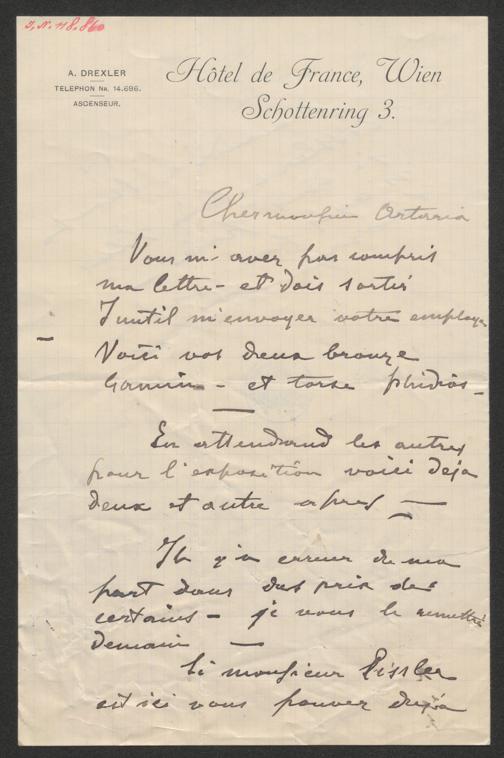 I.N. 118.860
A. DREXLER
TELEPHON No. 14.696.
ASCENSEUR.
Hôtel de France, Wien
Schottenring 3.
Cher monsieur Artaria
Vous m'aver pas compris
ma lettre - et dois sortir
Inutil m'envoyer votre employe
Voici vos deux bronze
Gamin - et torse phidias -
En attendand les autres
pour l'exposition voici deja
deux et autre apres -
Il y a erreur de ma
part dans des prix des
certains - je vous le remettre
demain -
Si monsieur Pissler
est ici vous pouver deja